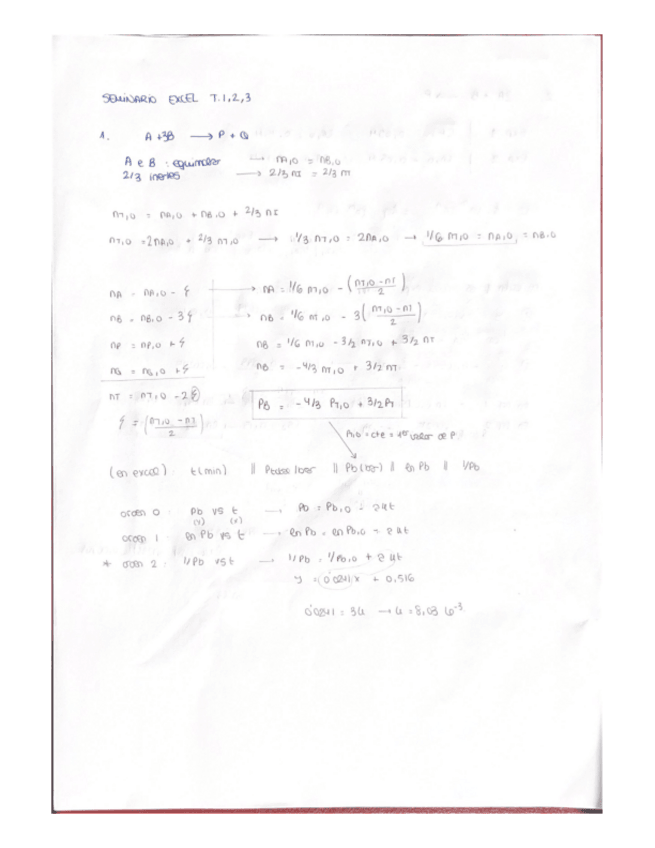 SEMINARIO EXCEL T.1,2,3
1. A + 3B → P + Q
A e B : equimolar → nA,0 = nB,0
2/3 inertes → 2/3 nI = 2/3 nT
nT,0 = nA,0 + nB,0 + 2/3 nI
nT,0 = 2nA,0 + 2/3 nT,0 → 1/3 nT,0 = 2nA,0 → 1/6 nT,0 = nA,0 = nB,0
nA = nA,0 - ξ → nA = 1/6 nT,0 - (nT,0 - nT / 2)
nB = nB,0 - 3ξ → nB = 1/6 nT,0 - 3(nT,0 - nT / 2)
nP = nP,0 + ξ nB = 1/6 nT,0 - 3/2 nT,0 + 3/2 nT
nQ = nQ,0 + ξ nB = -4/3 nT,0 + 3/2 nT
nT = nT,0 - 2ξ PB = -4/3 PT,0 + 3/2 PT
ξ = (nT,0 - nT / 2)
= cte = 1er valor de P
(en excel) : t(min) || Ptotal/bar || Pb(bar) || ln Pb || 1/Pb
orden 0 : Pb vs t → Pb = Pb,0 -
(y) (x)
orden 1 : ln Pb vs t → ln Pb = ln Pb,0 -
* orden 2 : 1/Pb vs t → 1/Pb = 1/Pb,0 +
y = 0'0241x + 0,516
0'0241 = 3k → k = 8,03 10⁻³